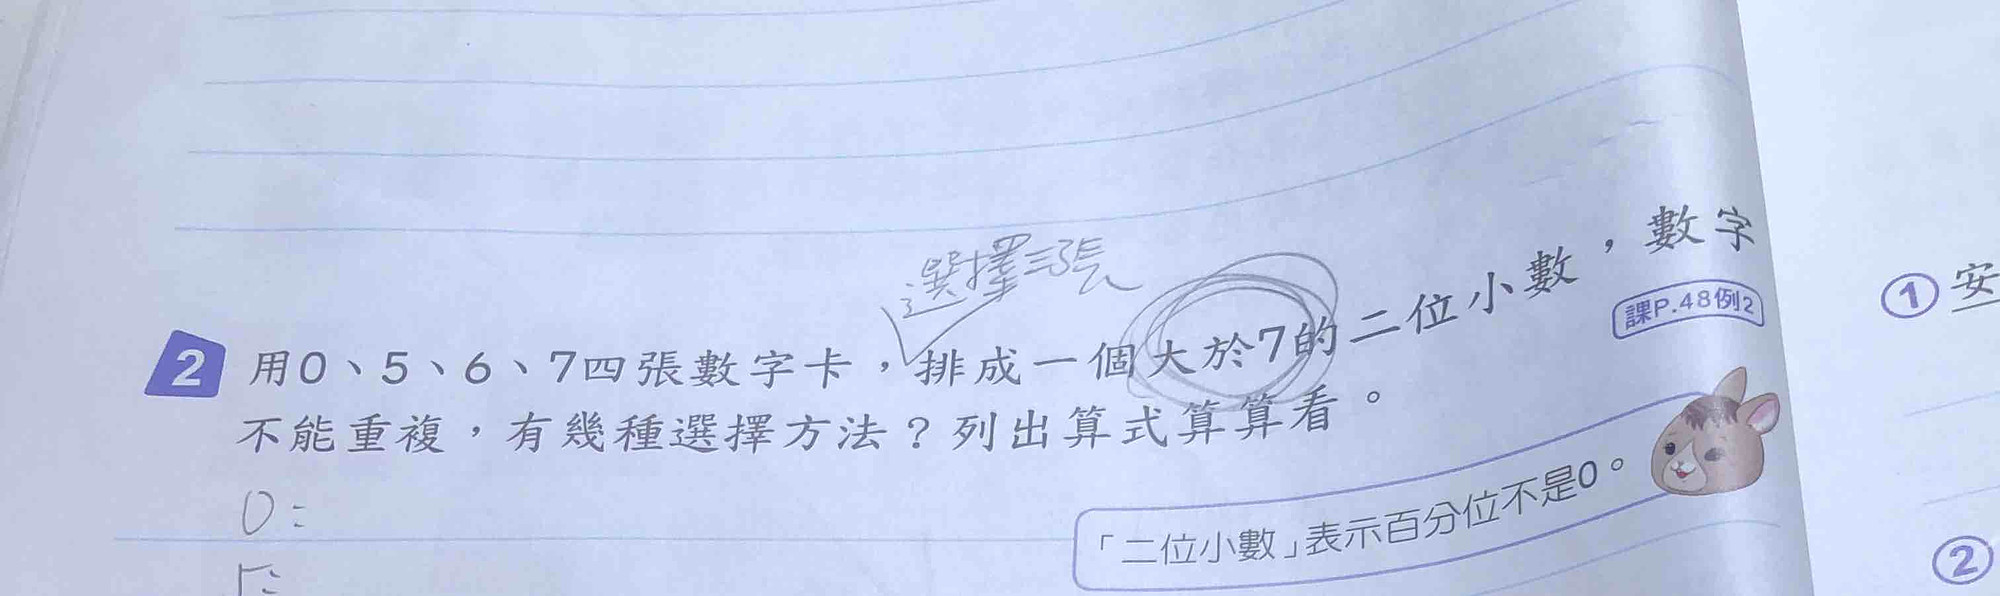 選擇三張
2 用0、5、6、7四張數字卡，排成一個大於7的二位小數，數字
課P.48例2
不能重複，有幾種選擇方法？列出算式算算看。
0：
「二位小數」表示百分位不是0。
① 安
②